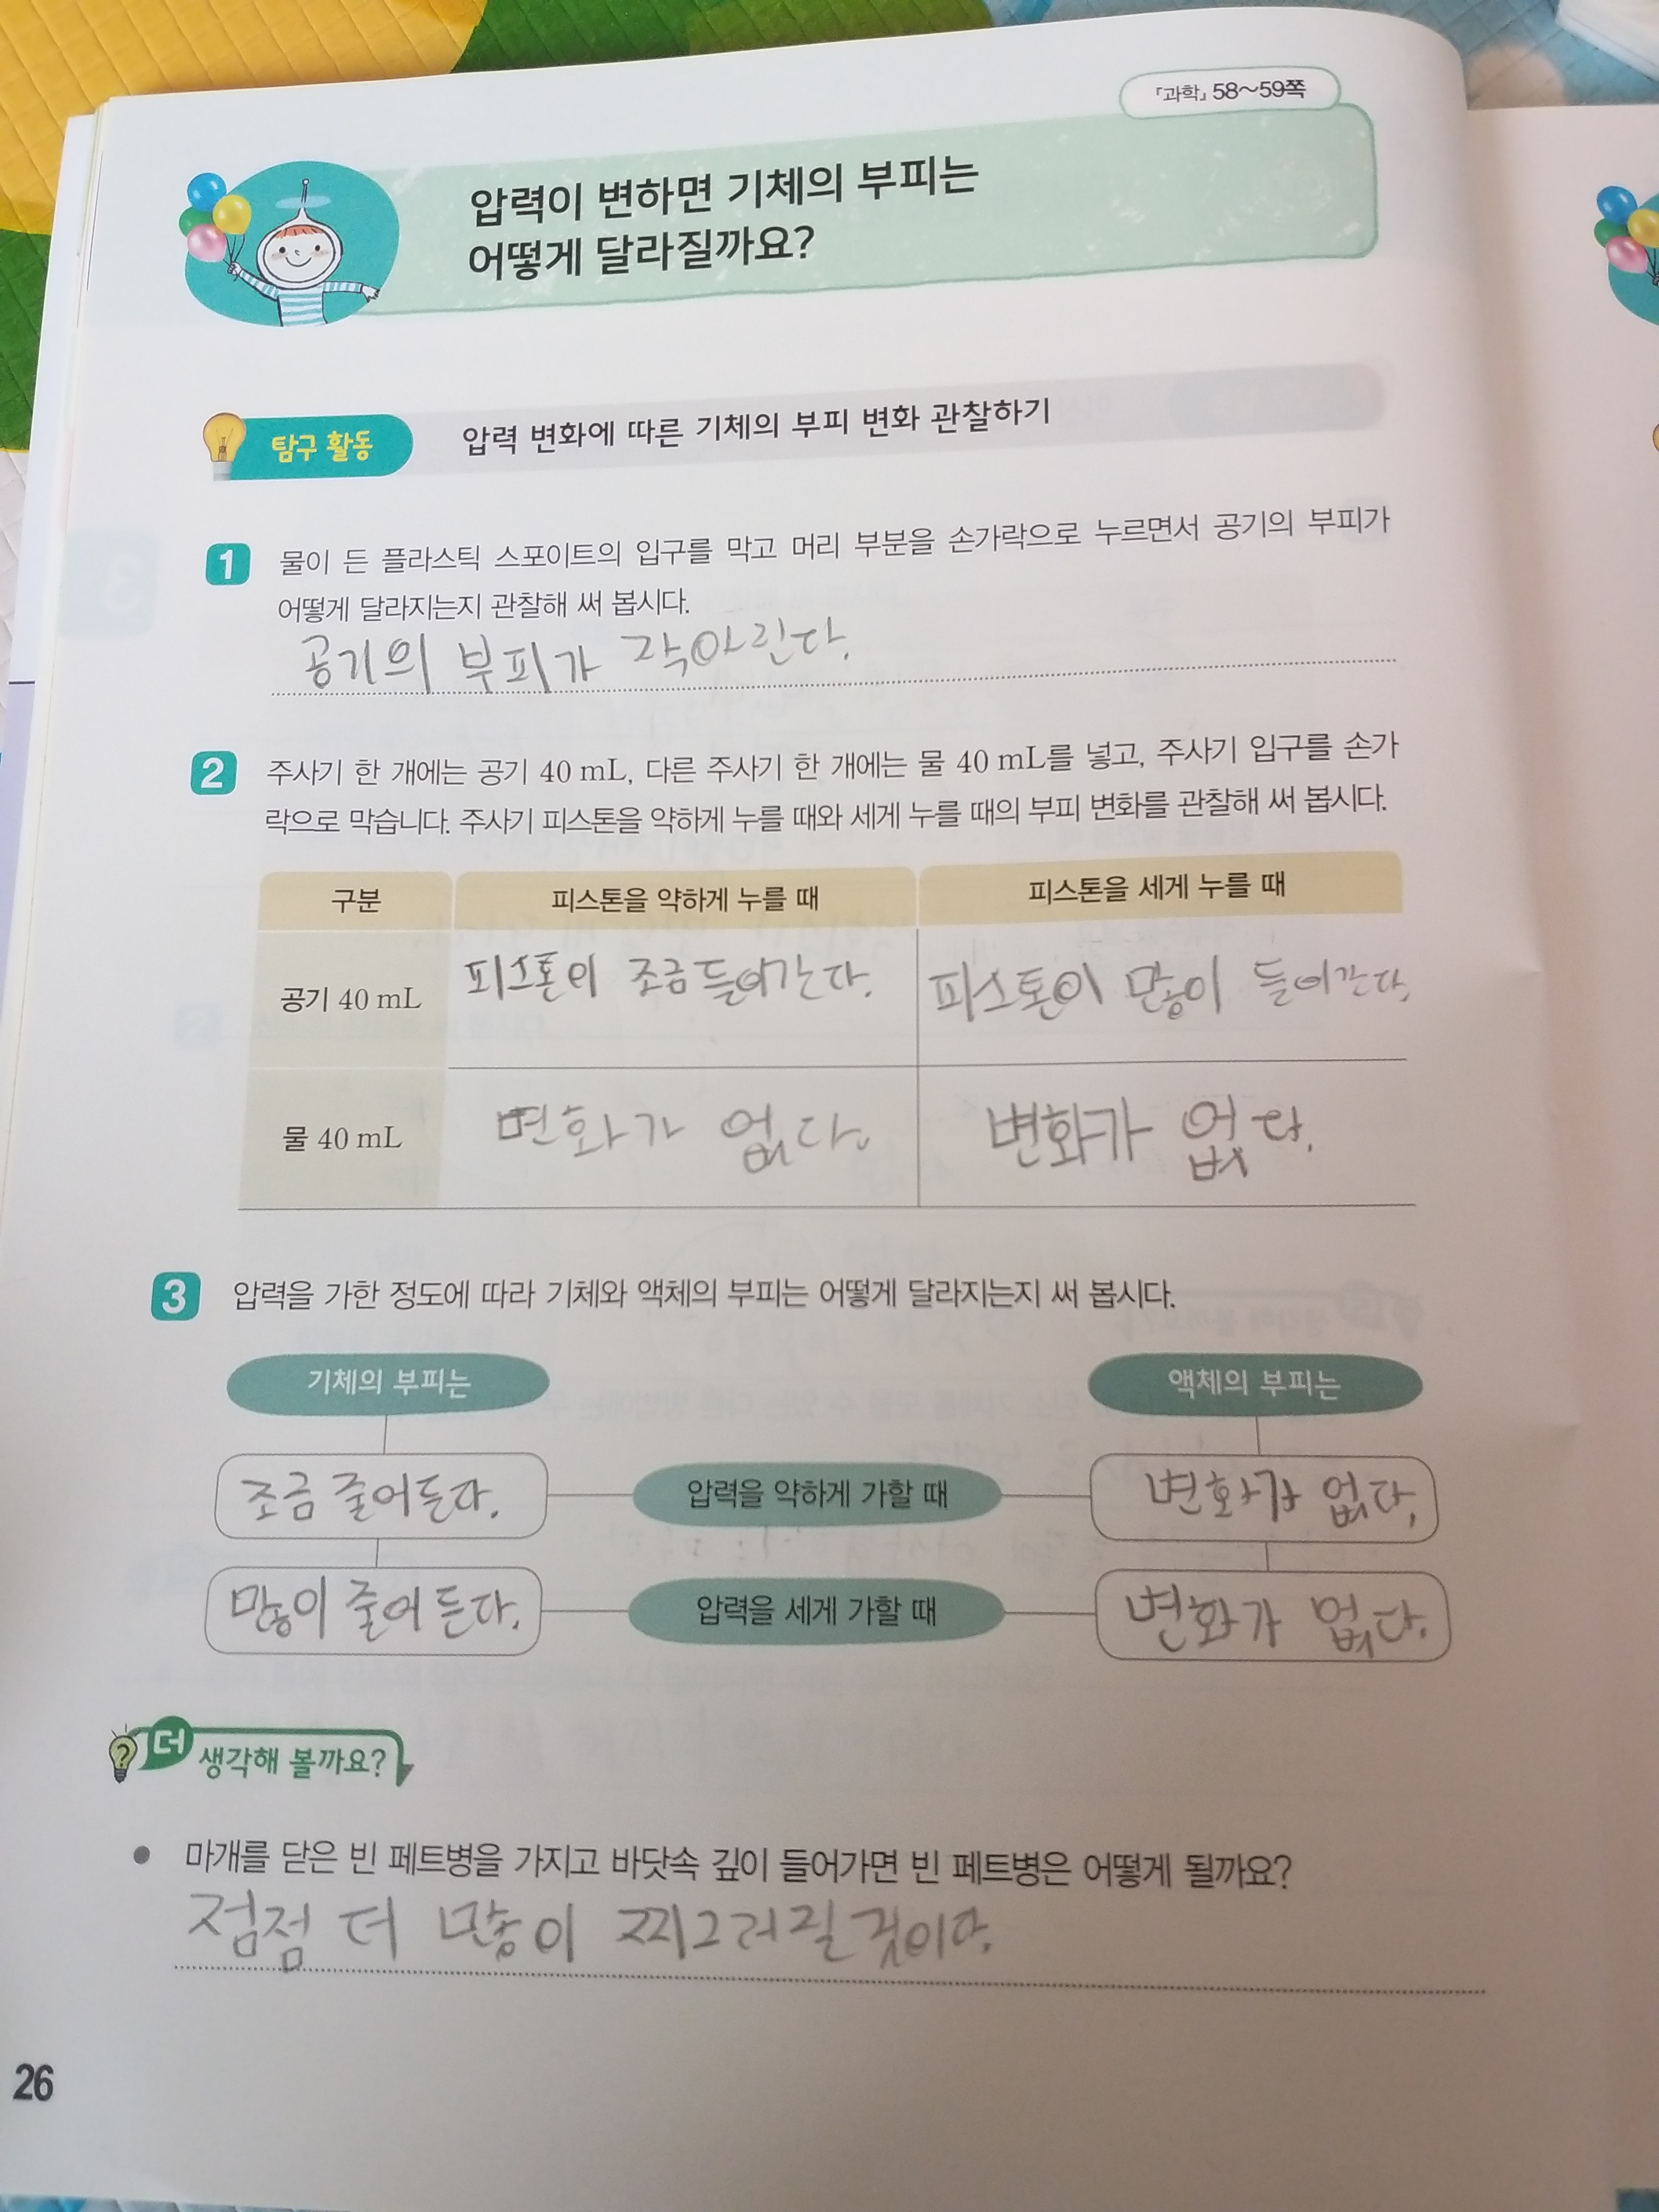 『과학』 58~59쪽
압력이 변하면 기체의 부피는
어떻게 달라질까요?
탐구 활동
압력 변화에 따른 기체의 부피 변화 관찰하기
1 물이 든 플라스틱 스포이트의 입구를 막고 머리 부분을 손가락으로 누르면서 공기의 부피가
어떻게 달라지는지 관찰해 써 봅시다.
공기의 부피가 작아린다.
2 주사기 한 개에는 공기 40 mL, 다른 주사기 한 개에는 물 40 mL를 넣고, 주사기 입구를 손가
락으로 막습니다. 주사기 피스톤을 약하게 누를 때와 세게 누를 때의 부피 변화를 관찰해 써 봅시다.
구분 피스톤을 약하게 누를 때 피스톤을 세게 누를 때
공기 40 mL 피스톤이 조금 들어간다. 피스톤이 많이 들어간다.
물 40 mL 변화가 없다. 변화가 없다.
3 압력을 가한 정도에 따라 기체와 액체의 부피는 어떻게 달라지는지 써 봅시다.
기체의 부피는 액체의 부피는
조금 줄어든다. 압력을 약하게 가할 때 변화가 없다.
많이 줄어든다. 압력을 세게 가할 때 변화가 없다.
더 생각해 볼까요?
• 마개를 닫은 빈 페트병을 가지고 바닷속 깊이 들어가면 빈 페트병은 어떻게 될까요?
점점 더 많이 찌그러질 것이다.
26